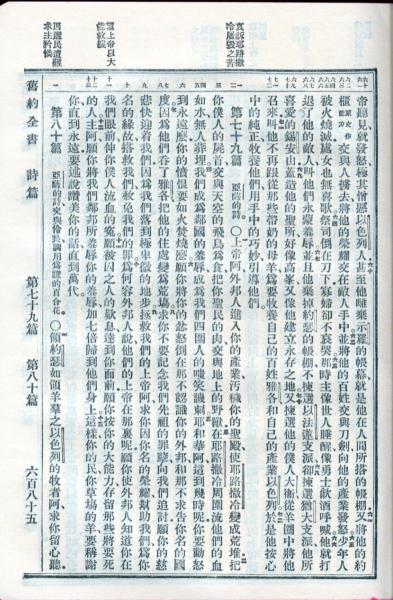 哀訴耶路撒
冷周毀之苦
望上帝以大
能救援
因選民遭艱
求主矜憫
帝聽見就發怒極其憎惡以色列人甚至他離棄示羅的帳幕就是他在人間所搭的帳棚又將他的約
櫃原文作力量交與人擄去將他的榮耀交在敵人手中並將他的百姓交與刀劍向他的產業發怒少年人
被火燒滅處女也無喜歌祭司倒在刀下寡婦卻不哀哭那時主像世人睡醒像勇士飲酒呼喊他就打
退了他的敵人叫他們永蒙羞辱並且他棄掉約瑟的帳棚不揀選以法蓮支派卻揀選猶大支派他所
喜愛的錫安山蓋造他的聖所好像高峯又像他建立永存之地又揀選他的僕人大衛從羊圈中將他
召來叫他不再跟從那些帶奶的母羊為要牧養自己的百姓雅各和自己的產業以色列於是他按心
中的純正牧養他們用手中的巧妙引導他們
第七十九篇 亞薩的詩 ○上帝阿外邦人進入你的產業汚穢你的聖殿使耶路撒冷變成荒堆把
你僕人的屍首交與天空的飛鳥為食把你聖民的肉交與地上的野獸在耶路撒冷周圍流他們的血
如水無人葬埋我們成為鄰國的羞辱成為我們四圍人的嗤笑譏刺耶和華阿這到幾時呢你要動怒
到永遠麼你的憤恨要如火焚燒麼願你將你的忿怒倒在那不認識你的外邦和那不求告你名的國
度因為他們吞了雅各把他的住處變為荒塲求你不要記念我們先祖的罪孽向我們追討願你的慈
悲快迎着我們因為我們落到極卑微的地步拯救我們的上帝阿求你因你名的榮耀幫助我們為你
名的緣故搭救我們赦免我們的罪為何容外邦人說他們的上帝在那裏呢願你使外邦人知道你在
我們眼前伸你僕人流血的冤願被囚之人的歎息達到你面前願你按你的大能力存留那些將要死
的人主阿願你將我們鄰邦所羞辱你的羞辱加七倍歸到他們身上這樣你的民你草塲的羊要稱謝
你直到永遠要述說讚美你的話直到萬代
第八十篇 亞薩的詩交與伶長調用為證的百合花 ○領約瑟如領羊羣之以色列的牧者阿求你留心聽
舊約全書 詩篇 第七十九篇 第八十篇 六百八十五